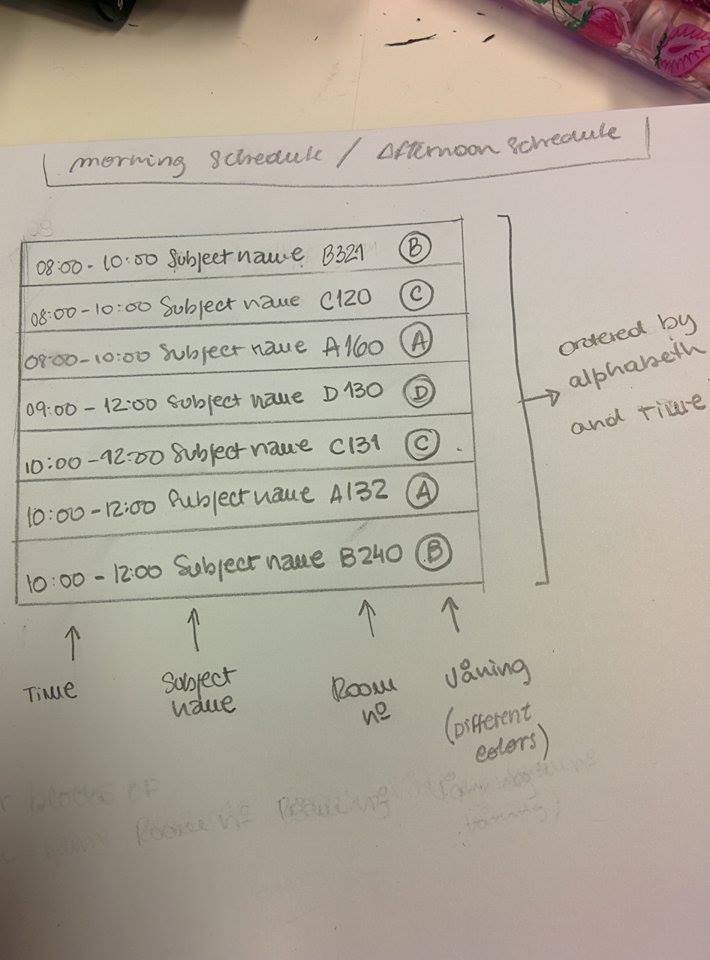 morning schedule / Afternoon schedule
08:00 - 10:00 Subject name B321 B
08:00 - 10:00 Subject name C120 C
08:00 - 10:00 Subject name A160 A
09:00 - 12:00 Subject name D130 D
10:00 - 12:00 Subject name C131 C
10:00 - 12:00 Subject name A132 A
10:00 - 12:00 Subject name B240 B
ordered by
alphabeth
and time
Time
Subject
name
Room
nº
Våning
(Different
colors)
blocks
Room nº